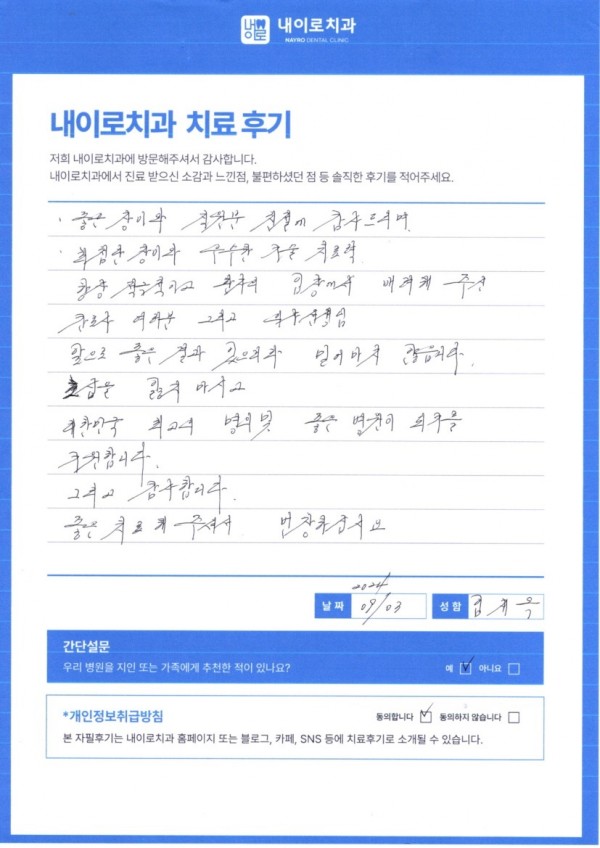 내이로
내이로치과
NAYRO DENTAL CLINIC
내이로치과 치료 후기
저희 내이로치과에 방문해주셔서 감사합니다.
내이로치과에서 진료 받으신 소감과 느낀점, 불편하셨던 점 등 솔직한 후기를 적어주세요.
· 좋은 장비와 직원분 친절에 감사드리며
· 최첨단 장비와 우수한 기술 치료력
항상 환자의 입장에서 배려해 주신
간호사 여러분 그리고 원장님
앞으로 좋은 결과 있으리라 믿어마지 않습니다.
초심을 잃지 마시고
대한민국 최고의 명의및 좋은 병원이 되주길
응원합니다.
그리고 감사합니다.
좋은 치료해 주셔서 번창하십시요
날짜
2024
09/03
성함
우
간단설문
우리 병원을 지인 또는 가족에게 추천한 적이 있나요?
예 ☑ 아니요 ☐
*개인정보취급방침
동의합니다 ☑ 동의하지 않습니다 ☐
본 자필후기는 내이로치과 홈페이지 또는 블로그, 카페, SNS 등에 치료후기로 소개될 수 있습니다.